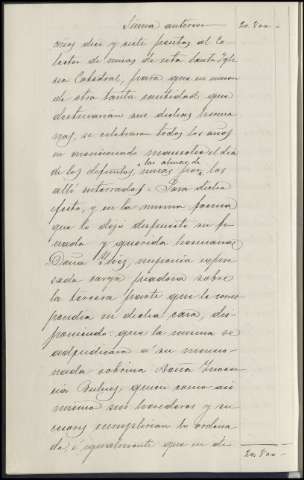 Suma anterior 20.800 -
mos diez y siete pesetas al Co-
lector de misas de esta Santa Igle-
sia Catedral, para que en union
de otra tanta cantidad que
destinaran sus dichas herma-
nas, se celebraran todos los años
en mencionado
de los difuntos, misas por las
a las almas de
allí enterradas. Para dicho
efecto, y en la misma forma
que lo dejó dispuesto su fi-
nada y querida hermana
Doña Ynéz, impusia espre-
sada carga piadosa sobre
la tercera parte que le corres-
pondia en dicha casa, dis-
poniendo que la misma se
adjudicara a su mencio-
nada sobrina Doña
quien como asi-
mismo sus herederos y su-
cesores cumplirian lo ordena-
do é igualmente que en di-
20.800 -